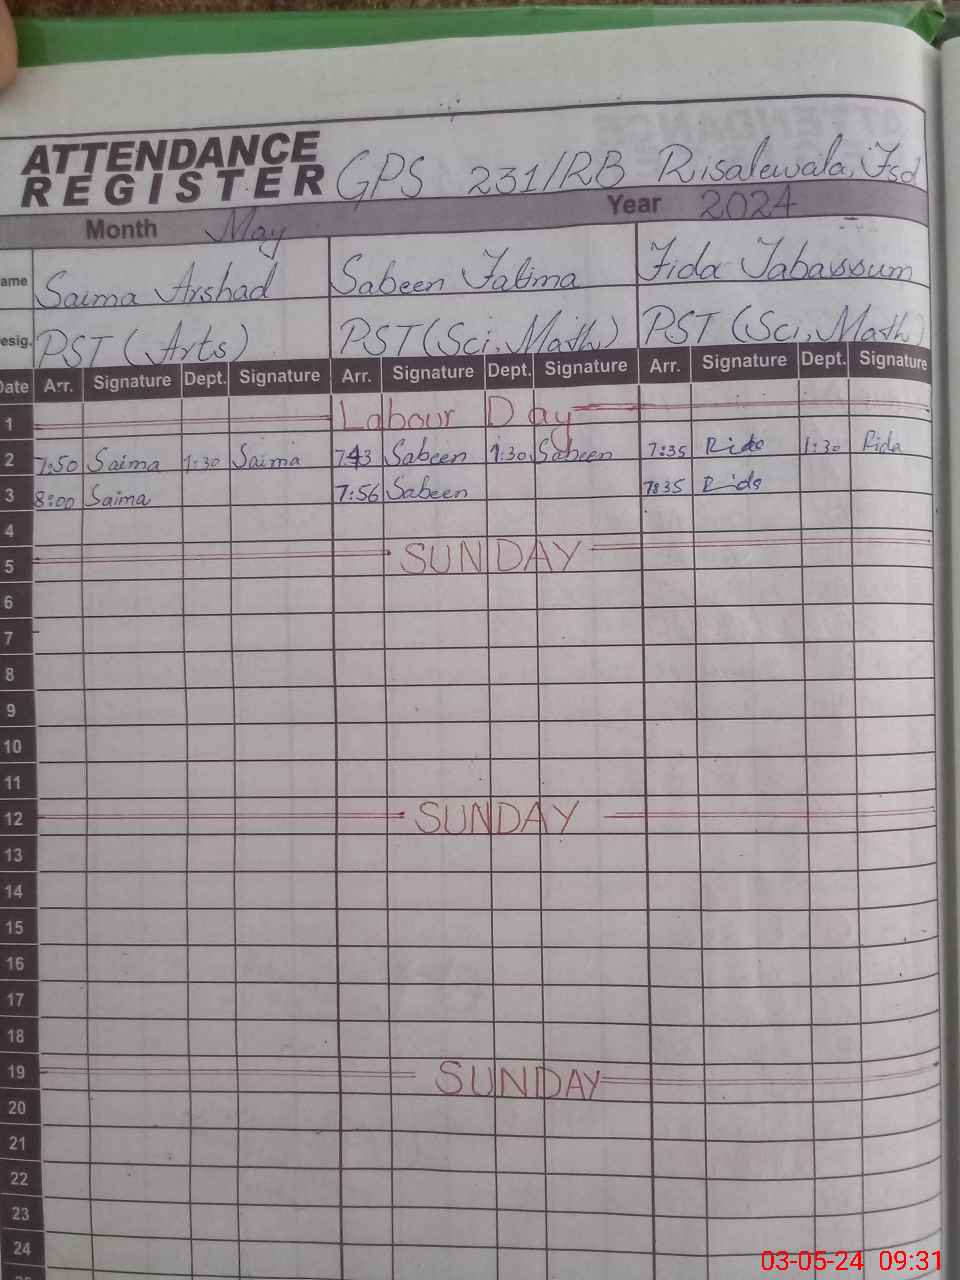 ATTENDANCE
REGISTER GPS 231/RB Risalewala, Fsd
Month May Year 2024
ame Saima Arshad Sabeen Fatima Fida Tabassum
esig. PST (Arts) PST (Sci, Math) PST (Sci, Math)
Date Arr. Signature Dept. Signature Arr. Signature Dept. Signature Arr. Signature Dept. Signature
1 Labour Day
2 7:50 Saima 1:30 Saima 7:43 Sabeen 1:30 Sabeen 7:35 Fida 1:30 Fida
3 8:00 Saima 7:56 Sabeen Fida
4
5 SUNDAY
6
7
8
9
10
11
12 SUNDAY
13
14
15
16
17
18
19 SUNDAY
20
21
22
23
24
03-05-24 09:31